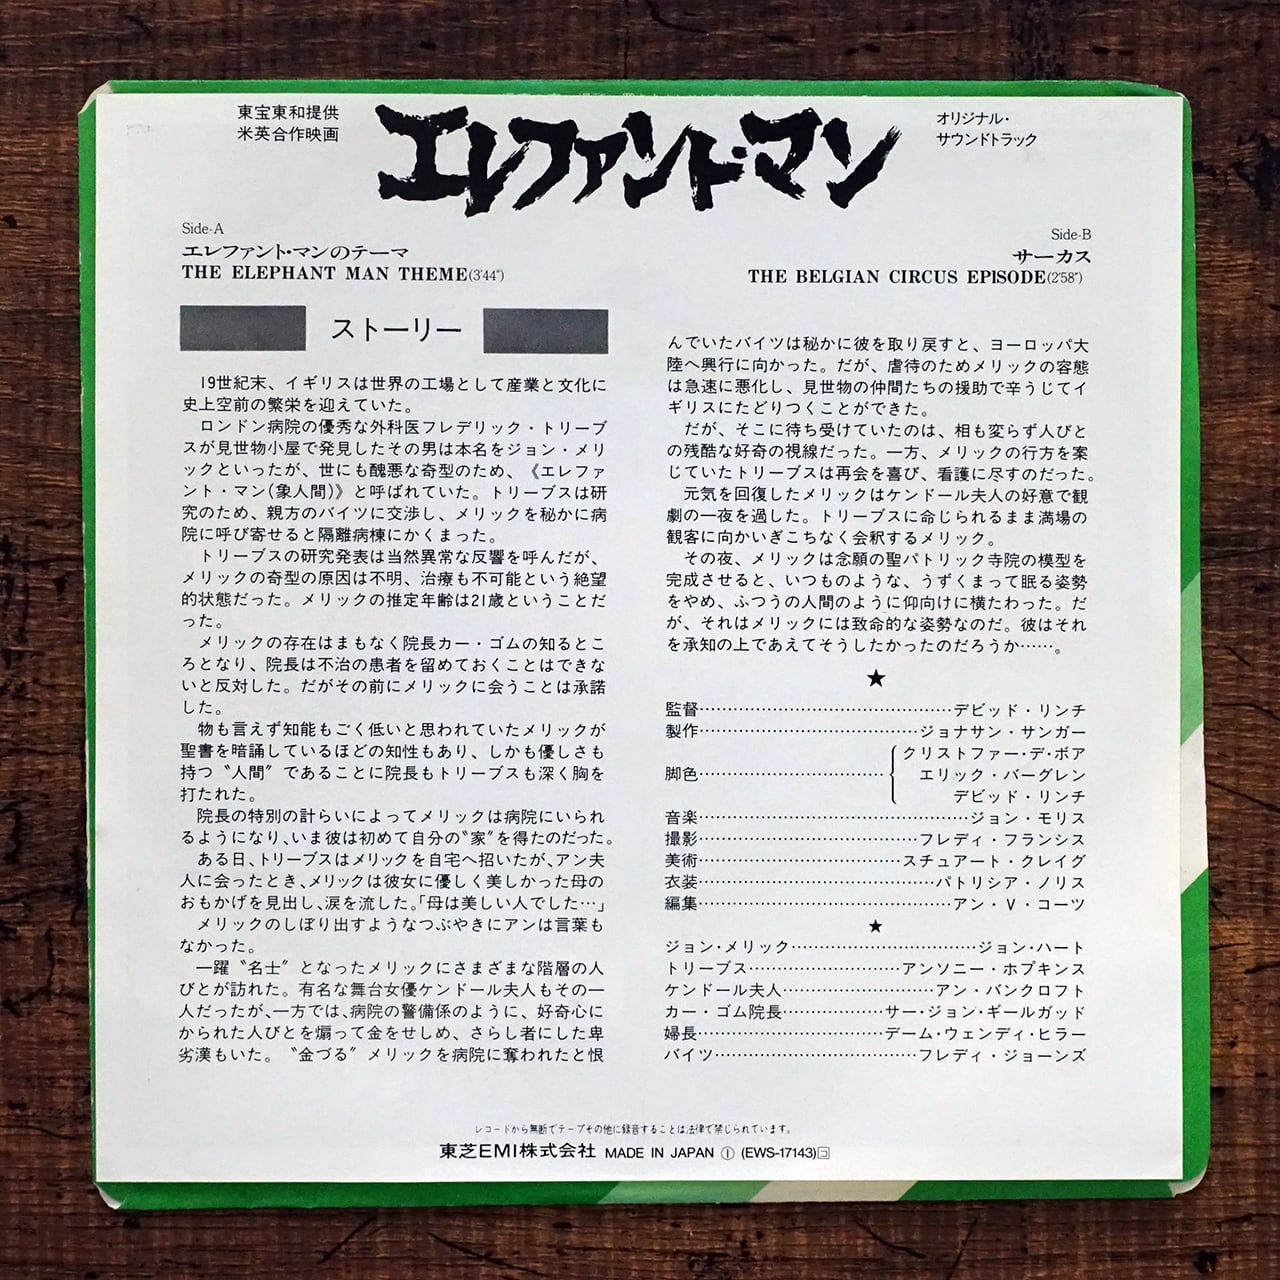 東宝東和提供
米英合作映画
エレファント・マン
オリジナル・
サウンドトラック
Side-A
エレファント・マンのテーマ
THE ELEPHANT MAN THEME(3'44")
Side-B
サーカス
THE BELGIAN CIRCUS EPISODE(2'58")
ストーリー
19世紀末、イギリスは世界の工場として産業と文化に
史上空前の繁栄を迎えていた。
ロンドン病院の優秀な外科医フレデリック・トリーブ
スが見世物小屋で発見したその男は本名をジョン・メリ
ックといったが、世にも醜悪な奇型のため、《エレファ
ント・マン(象人間)》と呼ばれていた。トリーブスは研
究のため、親方のバイツに交渉し、メリックを秘かに病
院に呼び寄せると隔離病棟にかくまった。
トリーブスの研究発表は当然異常な反響を呼んだが、
メリックの奇型の原因は不明、治療も不可能という絶望
的状態だった。メリックの推定年齢は21歳ということだ
った。
メリックの存在はまもなく院長カー・ゴムの知るとこ
ろとなり、院長は不治の患者を留めておくことはできな
いと反対した。だがその前にメリックに会うことは承諾
した。
物も言えず知能もごく低いと思われていたメリックが
聖書を暗誦しているほどの知性もあり、しかも優しさも
持つ〝人間〞であることに院長もトリーブスも深く胸を
打たれた。
院長の特別の計らいによってメリックは病院にいられ
るようになり、いま彼は初めて自分の〝家〞を得たのだった。
ある日、トリーブスはメリックを自宅へ招いたが、アン夫
人に会ったとき、メリックは彼女に優しく美しかった母の
おもかげを見出し、涙を流した。「母は美しい人でした…」
メリックのしぼり出すようなつぶやきにアンは言葉も
なかった。
一躍〝名士〞となったメリックにさまざまな階層の人
びとが訪れた。有名な舞台女優ケンドール夫人もその一
人だったが、一方では、病院の警備係のように、好奇心に
かられた人びとを煽って金をせしめ、さらし者にした卑
劣漢もいた。〝金づる〞メリックを病院に奪われたと恨
んでいたバイツは秘かに彼を取り戻すと、ヨーロッパ大
陸へ興行に向かった。だが、虐待のためメリックの容態
は急速に悪化し、見世物の仲間たちの援助で辛うじてイ
ギリスにたどりつくことができた。
だが、そこに待ち受けていたのは、相も変らず人びと
の残酷な好奇の視線だった。一方、メリックの行方を案
じていたトリーブスは再会を喜び、看護に尽すのだった。
元気を回復したメリックはケンドール夫人の好意で観
劇の一夜を過した。トリーブスに命じられるまま満場の
観客に向かいぎこちなく会釈するメリック。
その夜、メリックは念願の聖パトリック寺院の模型を
完成させると、いつものような、うずくまって眠る姿勢
をやめ、ふつうの人間のように仰向けに横たわった。だ
が、それはメリックには致命的な姿勢なのだ。彼はそれ
を承知の上であえてそうしたかったのだろうか……。
★
監督……デビッド・リンチ
製作……ジョナサン・サンガー
脚色……クリストファー・デ・ボア
エリック・バーグレン
デビッド・リンチ
音楽……ジョン・モリス
撮影……フレディ・フランシス
美術……スチュアート・クレイグ
衣装……パトリシア・ノリス
編集……アン・V・コーツ
★
ジョン・メリック……ジョン・ハート
トリーブス……アンソニー・ホプキンス
ケンドール夫人……アン・バンクロフト
カー・ゴム院長……サー・ジョン・ギールガッド
婦長……デーム・ウェンディ・ヒラー
バイツ……フレディ・ジョーンズ
レコードから無断でテープその他に録音することは法律で禁じられています。
東芝EMI株式会社 MADE IN JAPAN Ⓘ (EWS-17143)コ